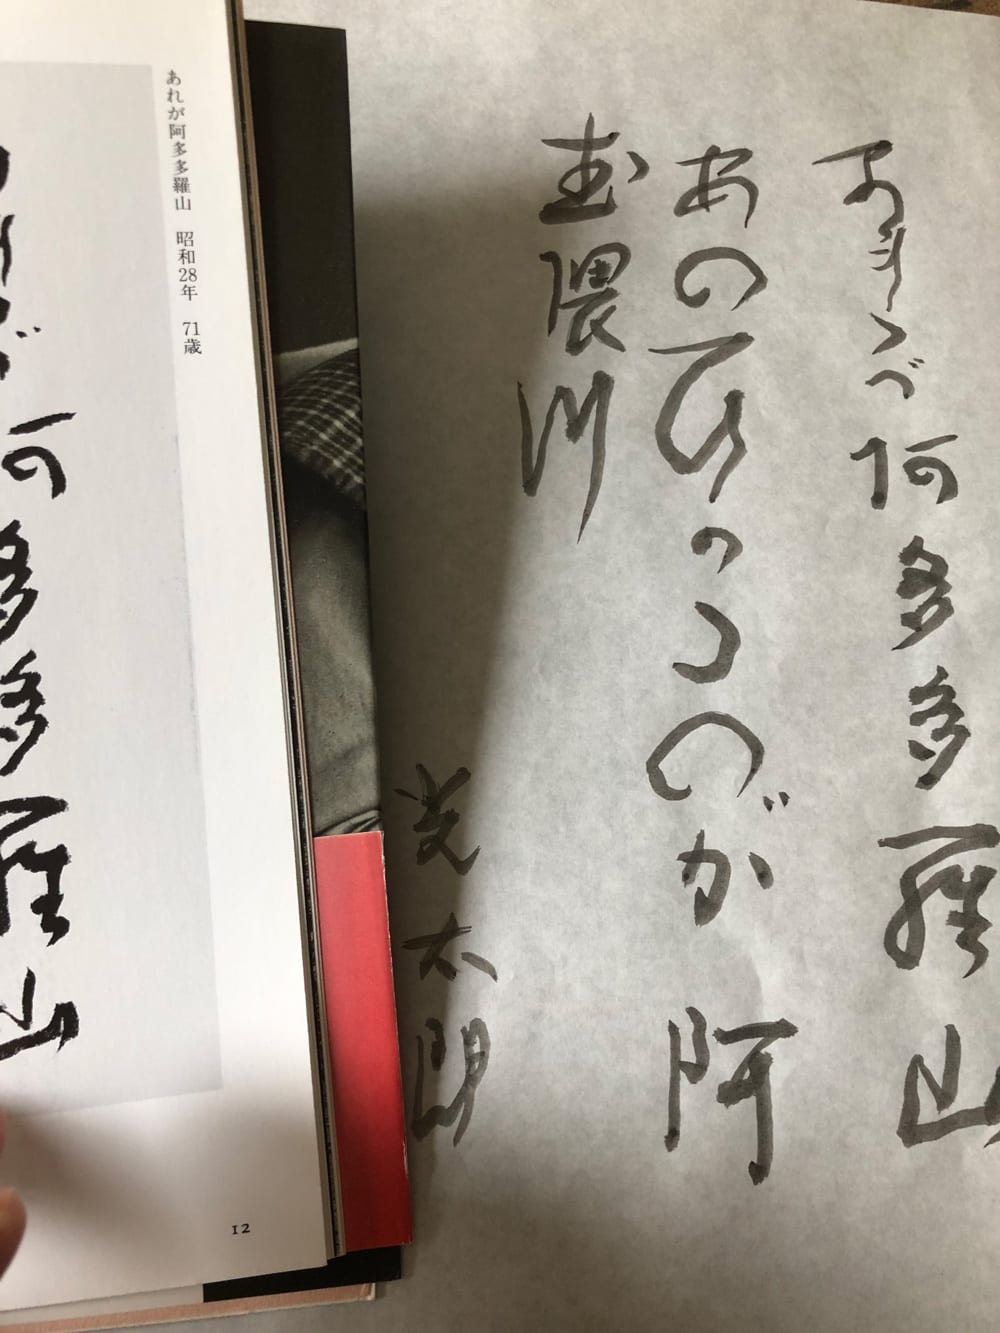 あれが阿多多羅山
あのひかるのが阿
武隈川
光太郎
あれが阿多多羅山 昭和28年 71歳
多多羅山
12